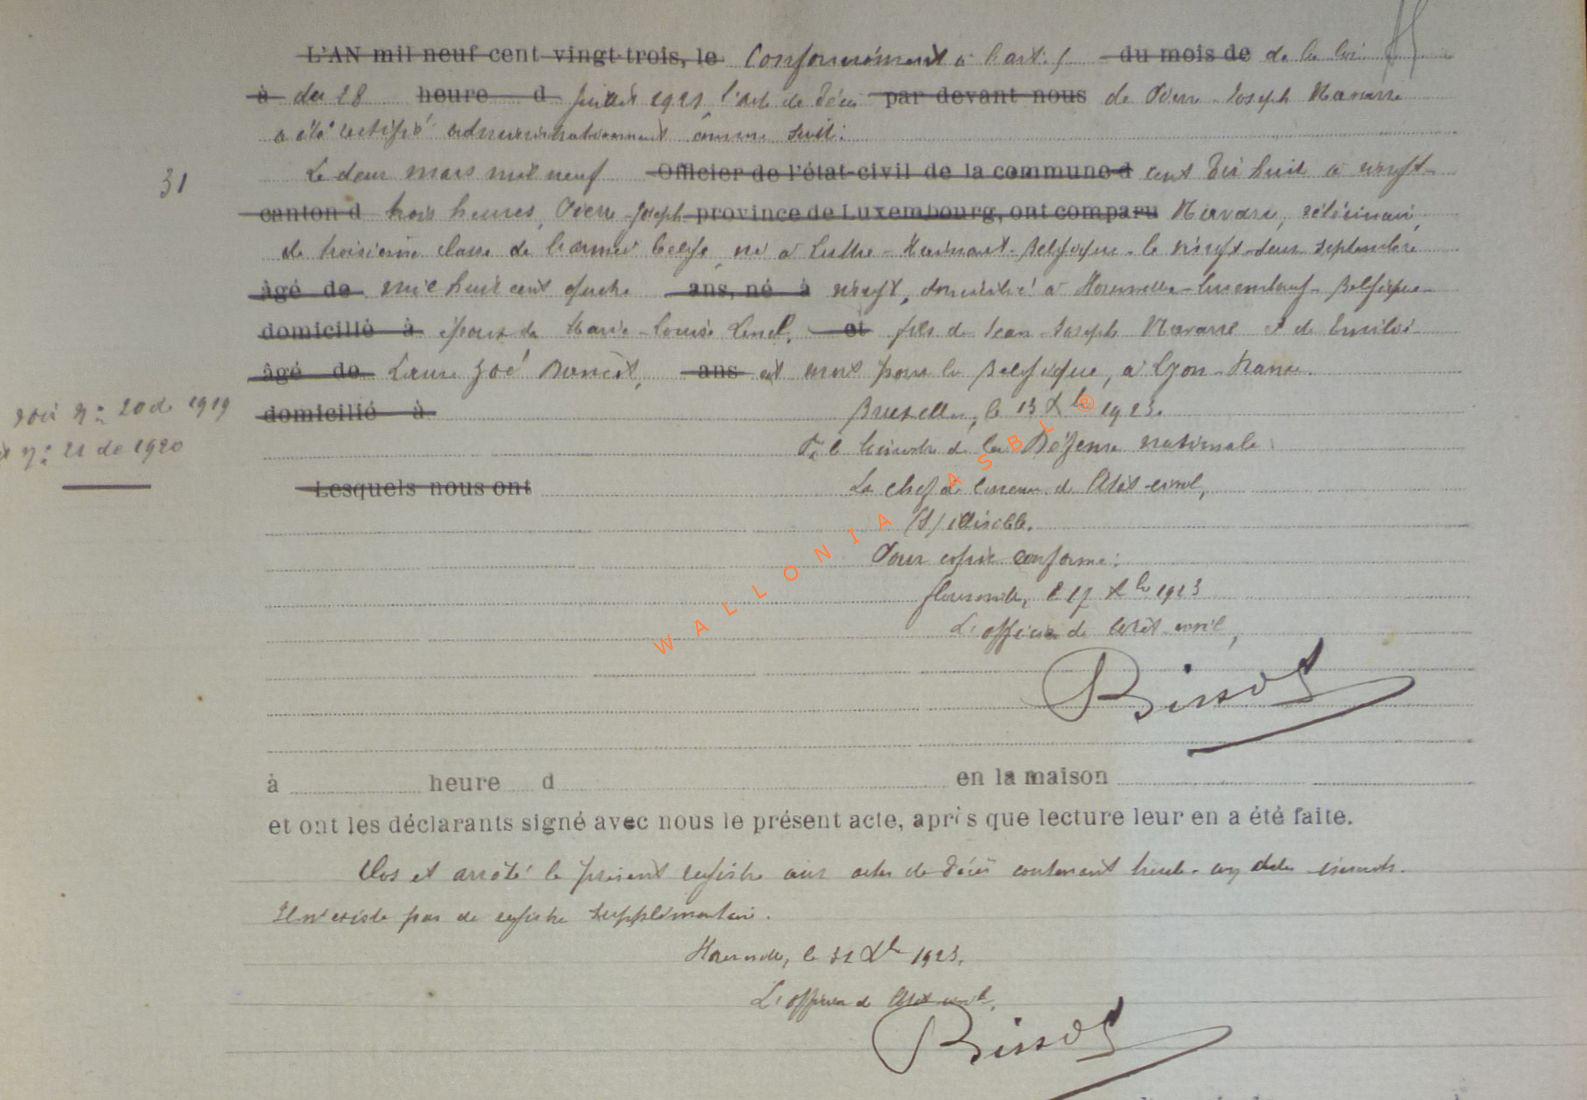 L'AN mil neuf cent vingt-trois, le Conformément à l'art. 1 du mois de de la loi
à du 28 heure d Juillet 1921, l'acte de décès par devant nous de Pierre-Joseph Navarre
a été rectifié administrativement comme suit:
31
Le deux mars mil neuf Officier de l'état-civil de la commune d cent dix huit à vingt-
canton d trois heures, Pierre-Joseph province de Luxembourg, ont comparu Navarre, vétérinaire
de troisième classe de l'armée belge, né à Luttre-Hainaut-Belgique-le vingt-deux septembre
âgé de mil huit cent quatre ans, né à vingt, domicilié à Florenville-Luxembourg-Belgique-
domicilié à époux de Marie-Louise et fils de Jean-Joseph Navarre et de
âgé de Laure Zoé Benoit, ans est mort pour la Belgique, à Lyon-France.
voir n° 20 de 1919
domicilié à
Bruxelles, le 13 Xbre 1923.
n° 21 de 1920
P. le Ministre de la Défense nationale
Lesquels nous ont
Le chef de bureau de l'Etat-civil,
(s) illisible.
Pour copie conforme:
Florenville, le 17 Xbre 1923
L'officier de l'Etat-civil,
à heure d en la maison
et ont les déclarants signé avec nous le présent acte, après que lecture leur en a été faite.
Clos et arrêté le présent registre aux actes de décès contenant trente-un actes inscrits.
Il n'existe pas de registre supplémentaire.
Florenville, le 31 Xbre 1923.
L'officier de l'Etat civil,
WALLONIA ASBL ®